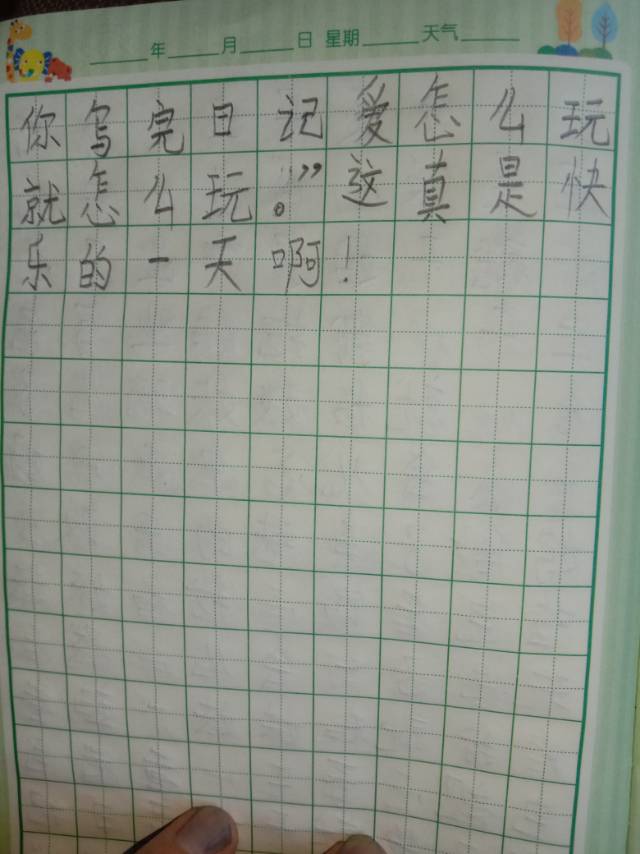 年 月 日 星期 天气
你写完日记爱怎么玩
就怎么玩。”这真是快
乐的一天啊！